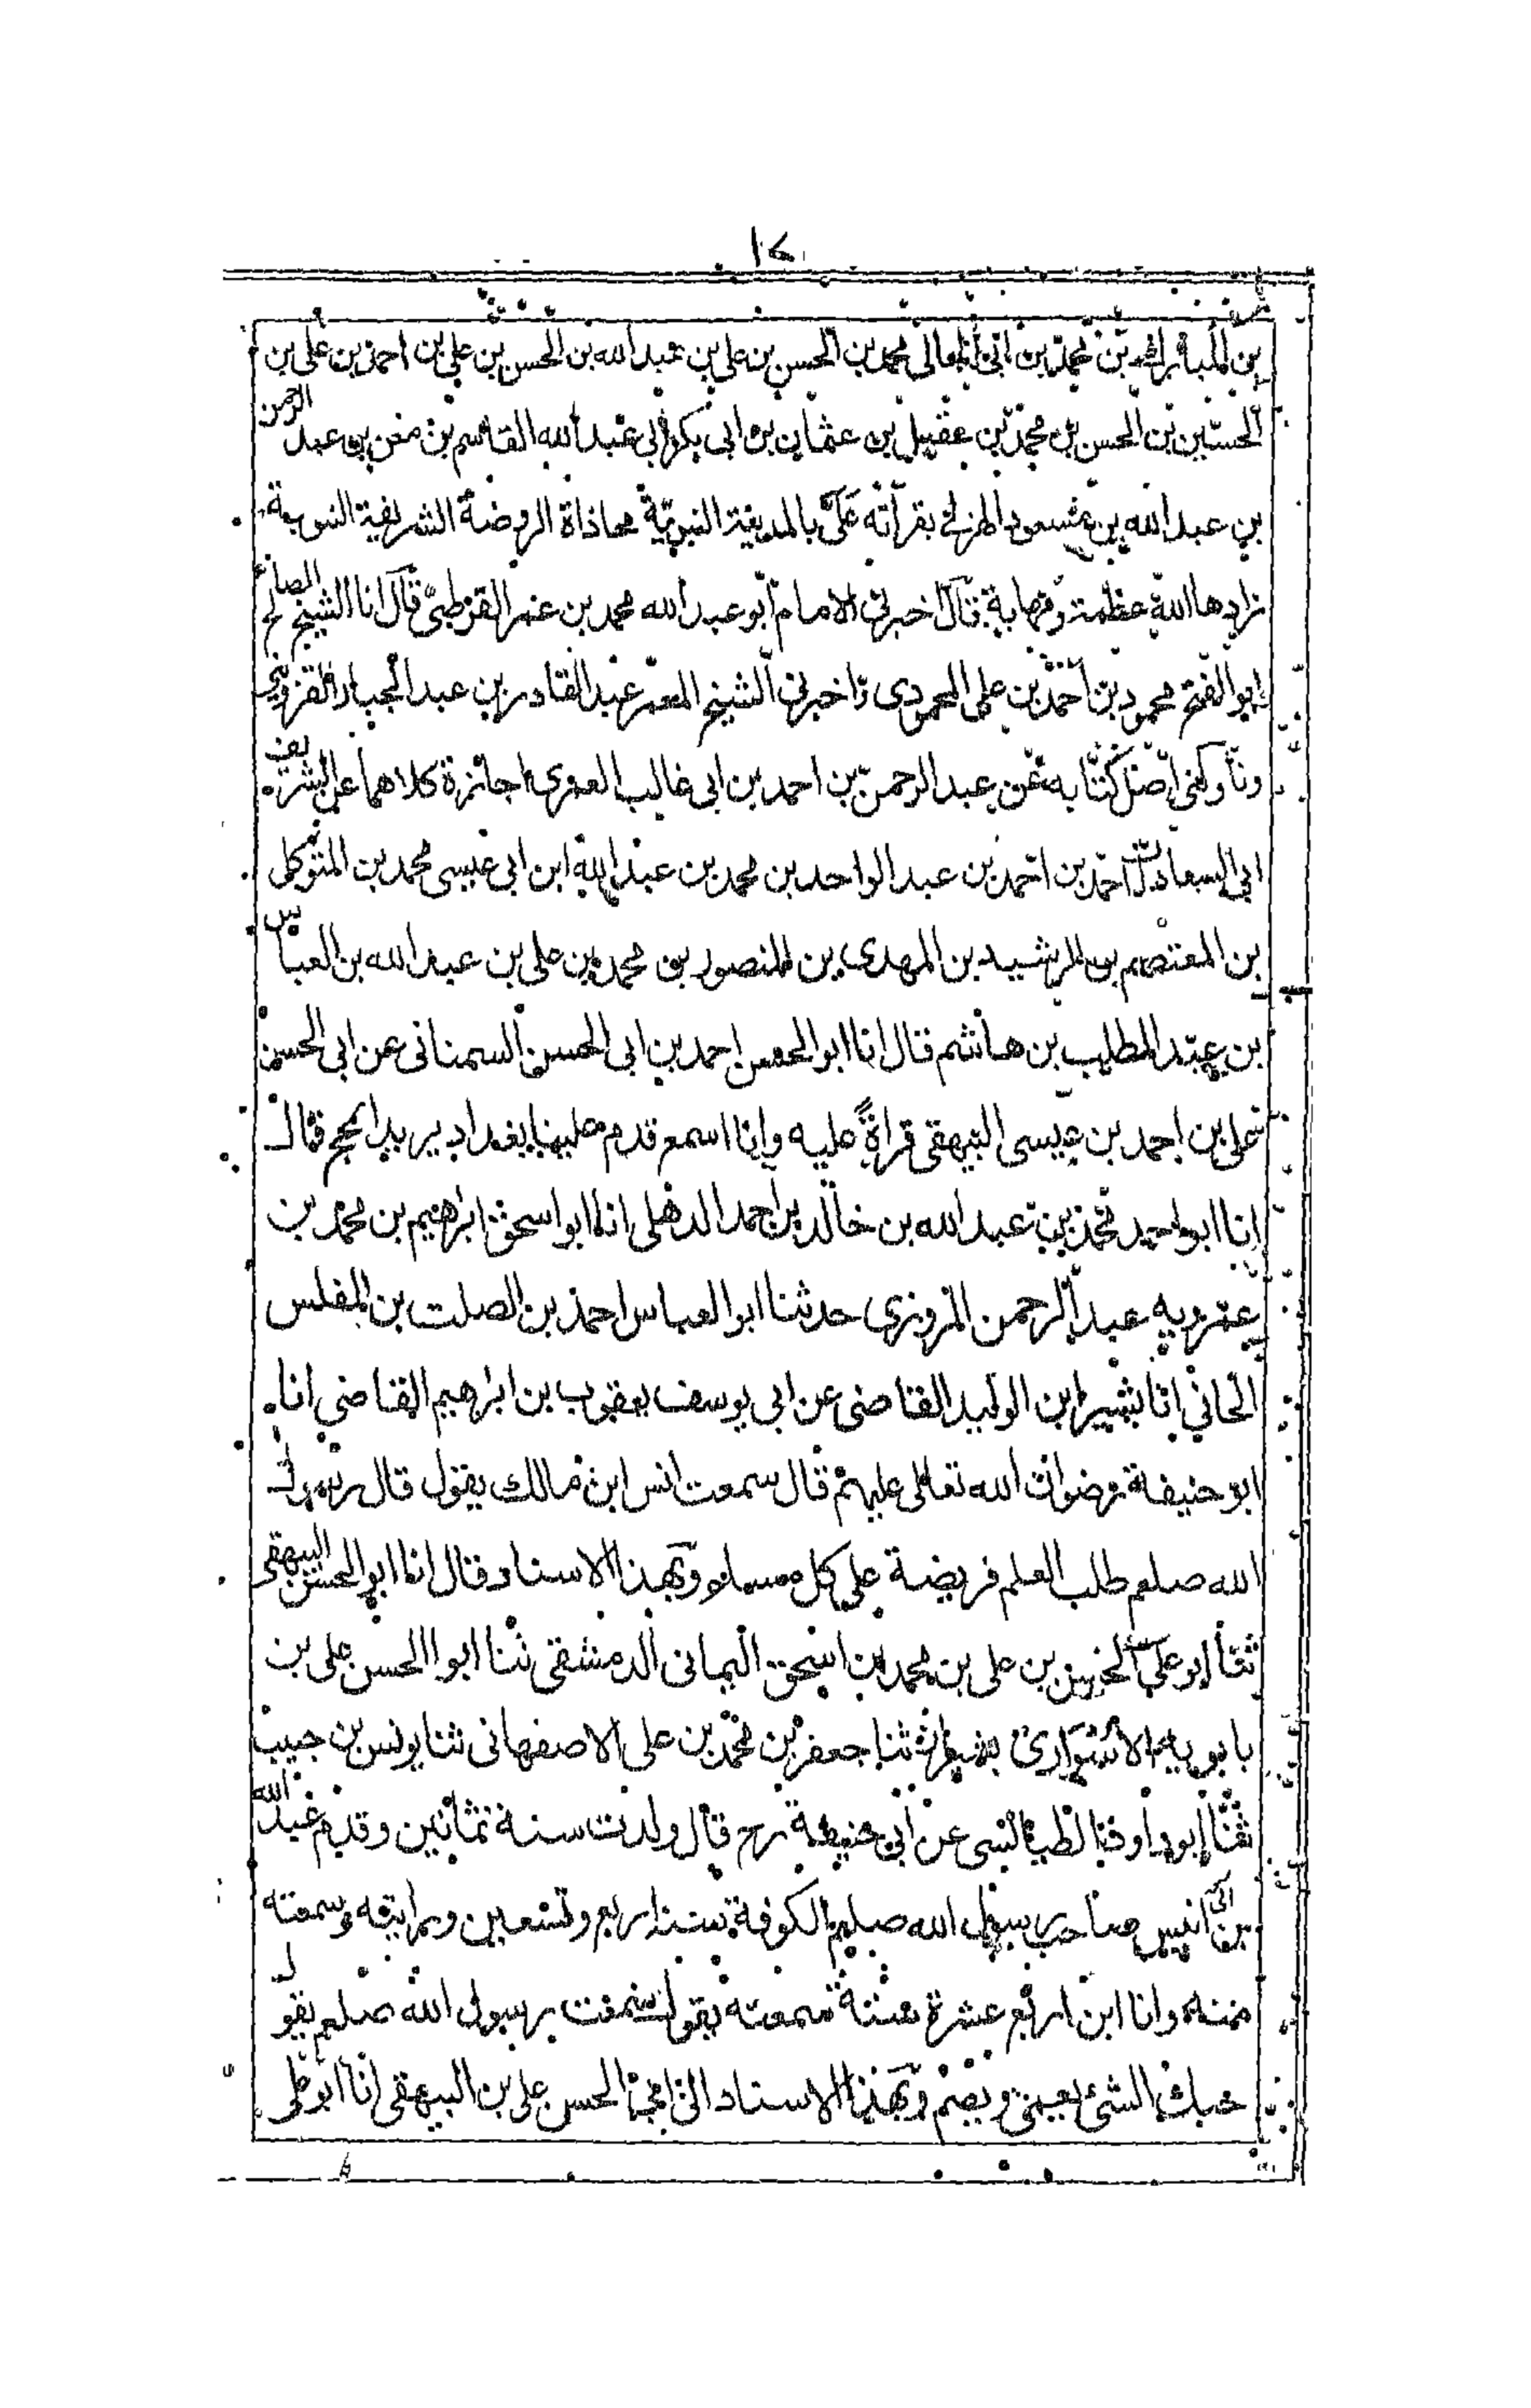 ١٤
بن المبارك بن محمد بن ابى المعالى محمد بن الحسن بن على بن عبد الله بن الحسن بن على بن احمد بن على بن
الحسين بن الحسن بن محمد بن عقيل بن عثمان بن ابى بكر ابى عبد الله القاسم بن معن بن عبد الرحمن
بن عبد الله بن مسعود بقرآته عَلَىَّ بالمدينة النبويّة محاذاة الروضة الشريفة النبوية
زادها الله عظمة ومهابة قال اخبرنى الامام ابو عبد الله محمد بن عمر القرطبىّ قال انا الشيخ الصالح
ابو الفتح محمود بن احمد بن على المحمودى واخبرنى الشيخ المعمر عبد القادر بن عبد الجبار القزوينى
وناولنى اصل كتابه عن عبد الرحمن بن احمد بن ابى غالب العمرى اجازة كلاهما عن الشريف
ابى السعادات احمد بن احمد بن عبد الواحد بن محمد بن عبد الله ابن ابى عيسى محمد بن المتوكل
بن المعتصم بن الرشيد بن المهدى بن المنصور بن محمد بن على بن عبد الله بن العباس
بن عبد المطلب بن هاشم قال انا ابو الحسن احمد بن ابى الحسن السمنانى عن ابى الحسن
على بن احمد بن عيسى البيهقى قراةً عليه وانا اسمع قدم علينا بغداد يريد الحج قال
انا ابو احمد محمد بن عبد الله بن خالد بن احمد الدهلى انا ابو اسحق ابرهيم بن محمد بن
عمرويه عبد الرحمن المروزى حدثنا ابو العباس احمد بن الصلت بن المفلس
الحانى انا بشير ابن الوليد القاضى عن ابى يوسف يعقوب بن ابرهيم القاضى انا
ابو حنيفة رضوان الله تعالى عليهم قال سمعت انس ابن مالك يقول قال رسول
الله صلعم طلب العلم فريضة على كل مسلم وبهذا الاسناد قال انا ابو الحسن البيهقى
ثنا ابو على الحسن بن على بن محمد بن اسحق اليمانى الدمشقى ثنا ابو الحسن على بن
بابويه الاسوارى بشيراز ثنا جعفر بن محمد بن على الاصفهانى ثنا يونس بن حبيب
ثنا ابو داود الطيالسى عن ابى حنيفة رح قال ولدت سنة ثمانين وقدم عبد الله
بن انيس صاحب رسول الله صلعم الكوفة سنة اربع وتسعين ورايته وسمعته
منه وانا ابن اربع عشرة سنة سمعته يقول سمعت رسول الله صلعم يقول
حبك الشئ يعمى ويصم وبهذا الاسناد الى ابى الحسن على بن البيهقى انا ابو على